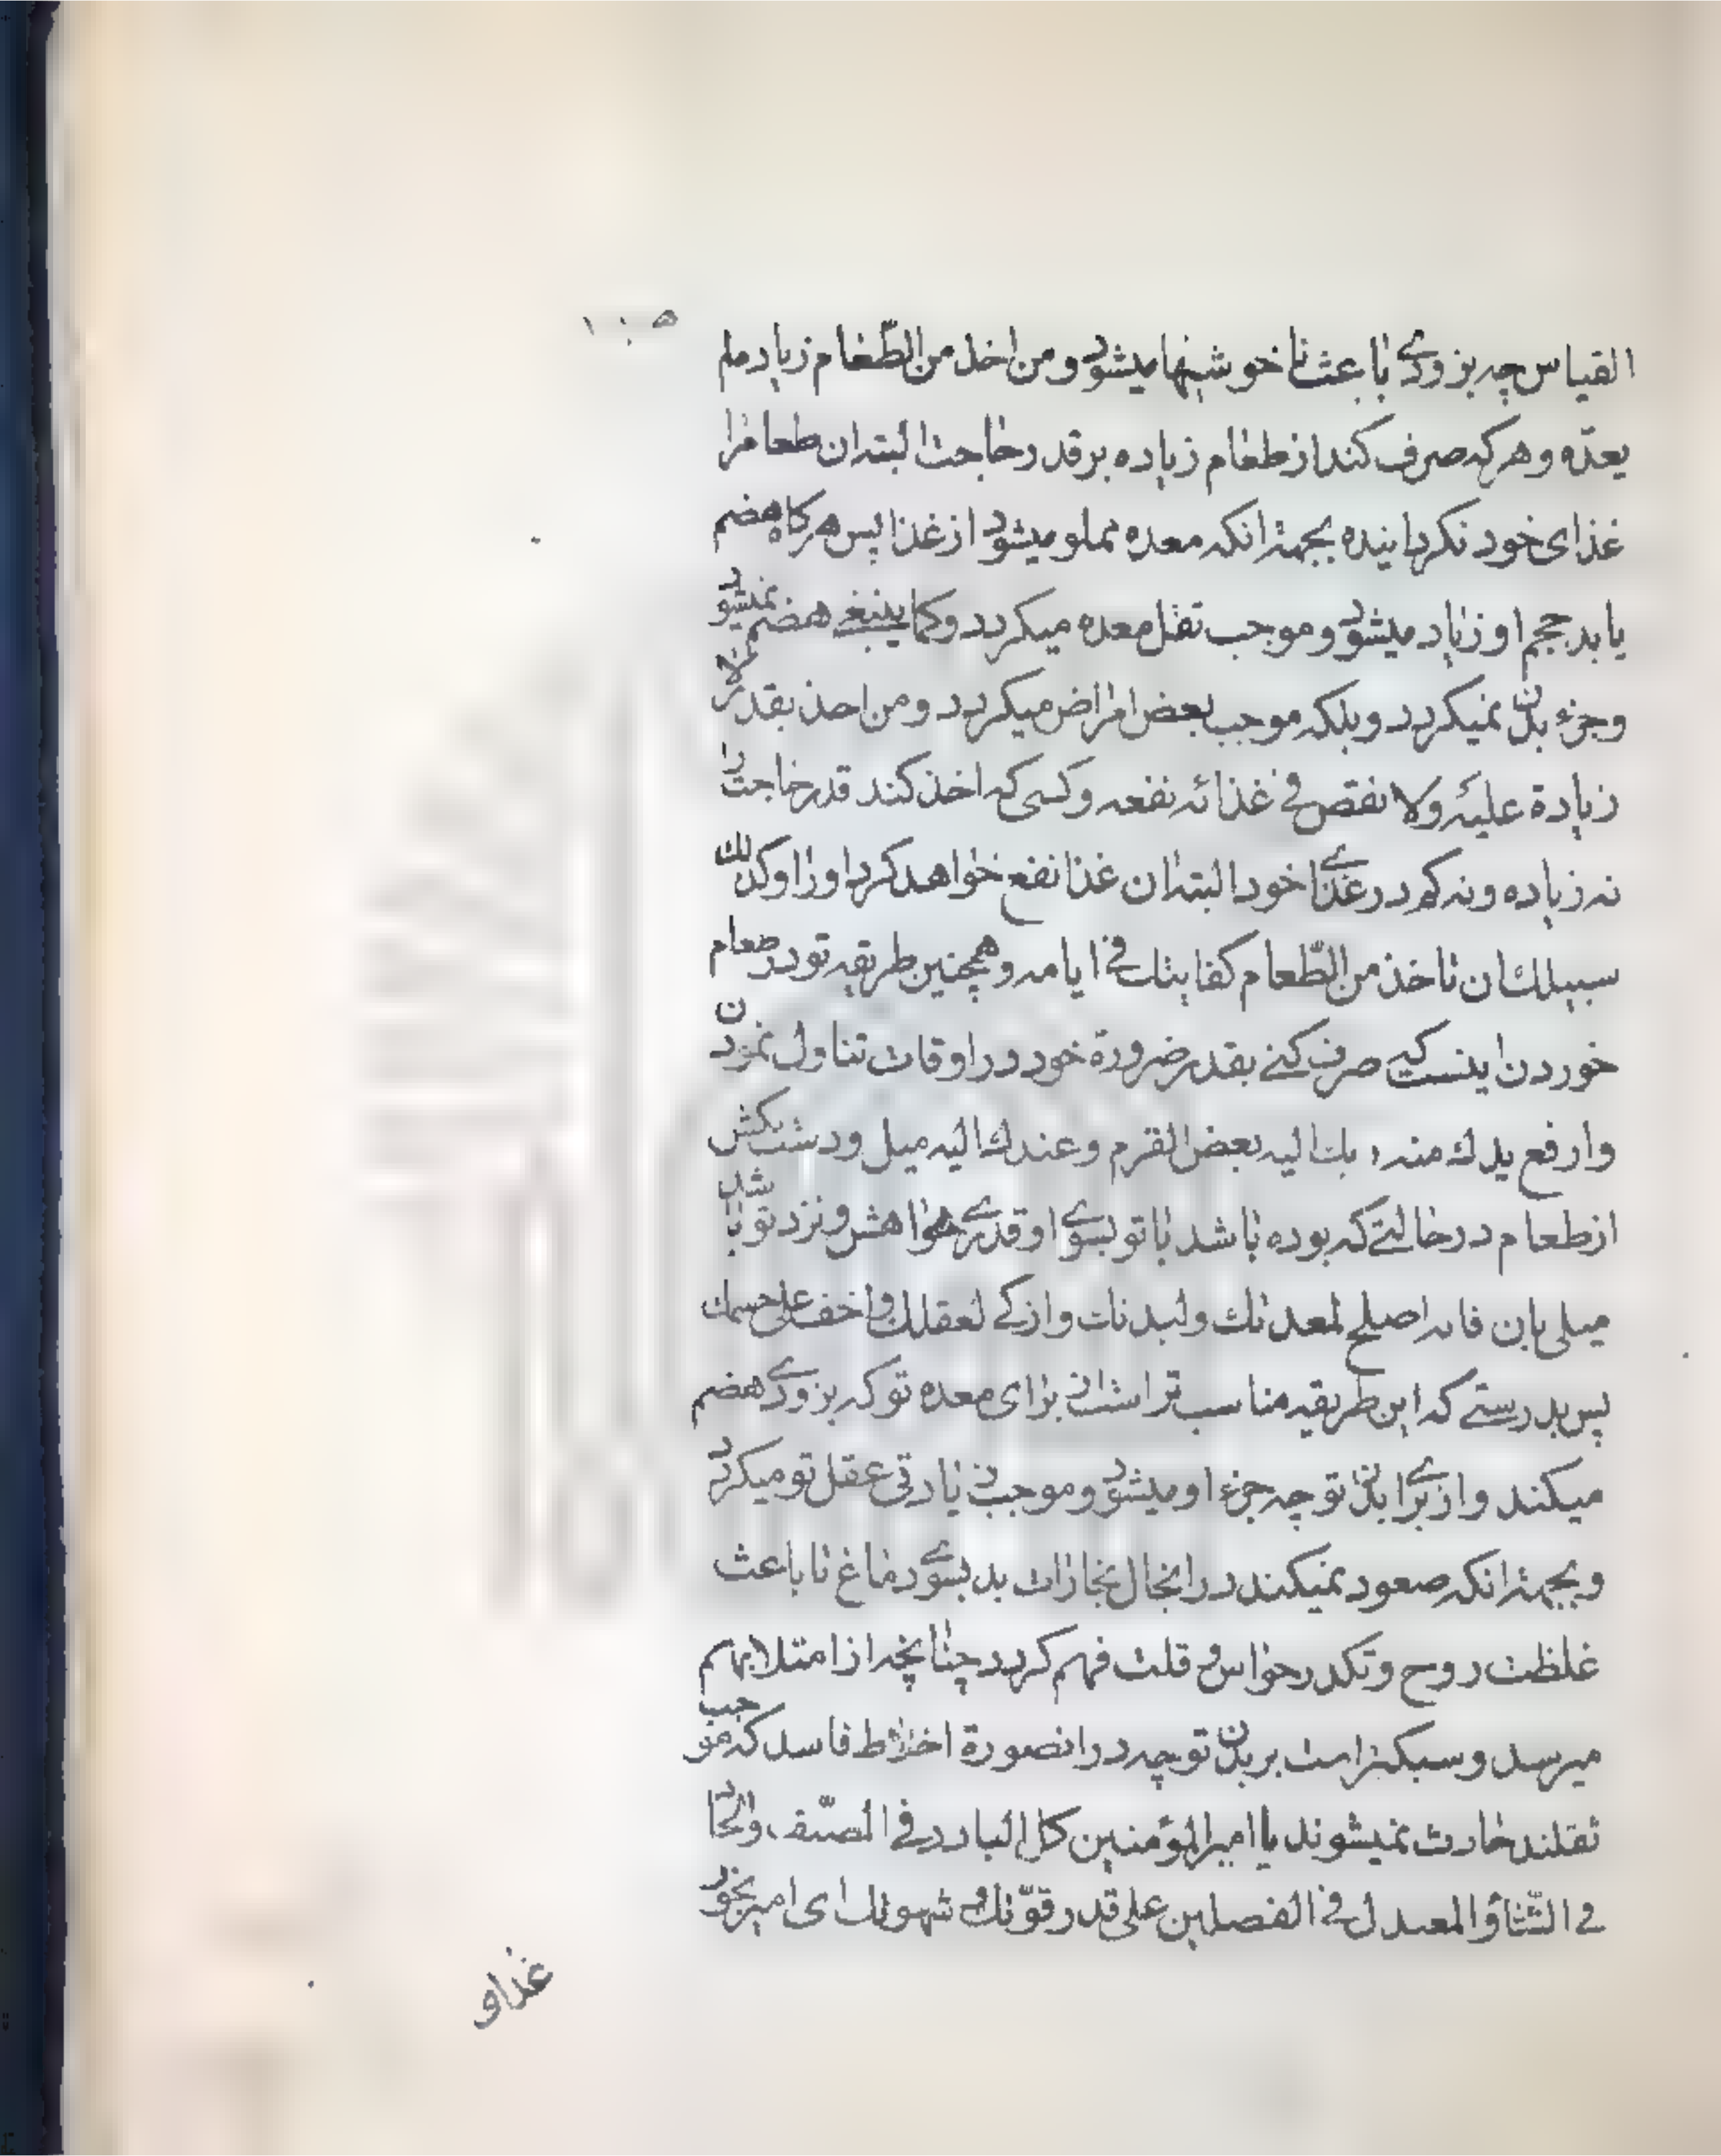 ۱۰۵
القیاس چه بزودی باعث ناخوشیها میشود و من اخذ من الطّعام زیاد ملم
یعدّه و هرکه صرف کند از طعام زیاده بر قدر حاجت البته ان طعام را
غذای خود نکرداینده بجهة انکه معده مملو میشود از غذا پس هرکاه هضم
یابد حجم او زیاد میشود و موجب ثقل معده میکردد و کما ینبغے هضم نمیشود
و جزء بدن نمیکردد و بلکه موجب بعض امراض میکردد و من احذ بقدر لا
زیادة علیه ولا نقص فے غذائه نفعه و کسی که اخذ کند قدر حاجت را
نه زیاده و نه کم در غذای خود البته ان غذا نفع خواهد کرد او را و کذلك
سبیلك ان تاخذ من الطّعام کفایتك فے ایامه و همچنین طریقه تو در طعام
خوردن اینست که صرف کنے بقدر ضرورة خود در اوقات تناول نمودن
وارفع یدك منه و بك الیه بعض القرم و عندك الیه میل و دست بکش
از طعام در حالتے که بوده باشد با تو بسوی او قدری خواهش و نزد تو باشد
میلی بان فانه اصلح لمعدتك و لبدنك و ازکے لعقلك و اخف علی جسمك
پس بدرستے که این طریقه مناسب تر است از برای معده تو که بزودی هضم
میکند و از برای بدن تو چه جزء او میشود و موجب زیادتی عقل تو میکردد
و بجهة انکه صعود نمیکند در انحال بخارات بد بسوی دماغ تا باعث
غلظت روح و تکدر حواس و قلت فهم کردد چنانچه از امتلا بهم
میرسد و سبکتر است بر بدن تو چه در انصورة اخلاط فاسد که موجب
ثقلند حادث نمیشوند یا امیر المؤمنین کل البارد فے الصّیف و الحار
فے الشّتاء و المعتدل فے الفصلین علی قدر قوّتك و شهوتك ای امیر بخور
غذاو